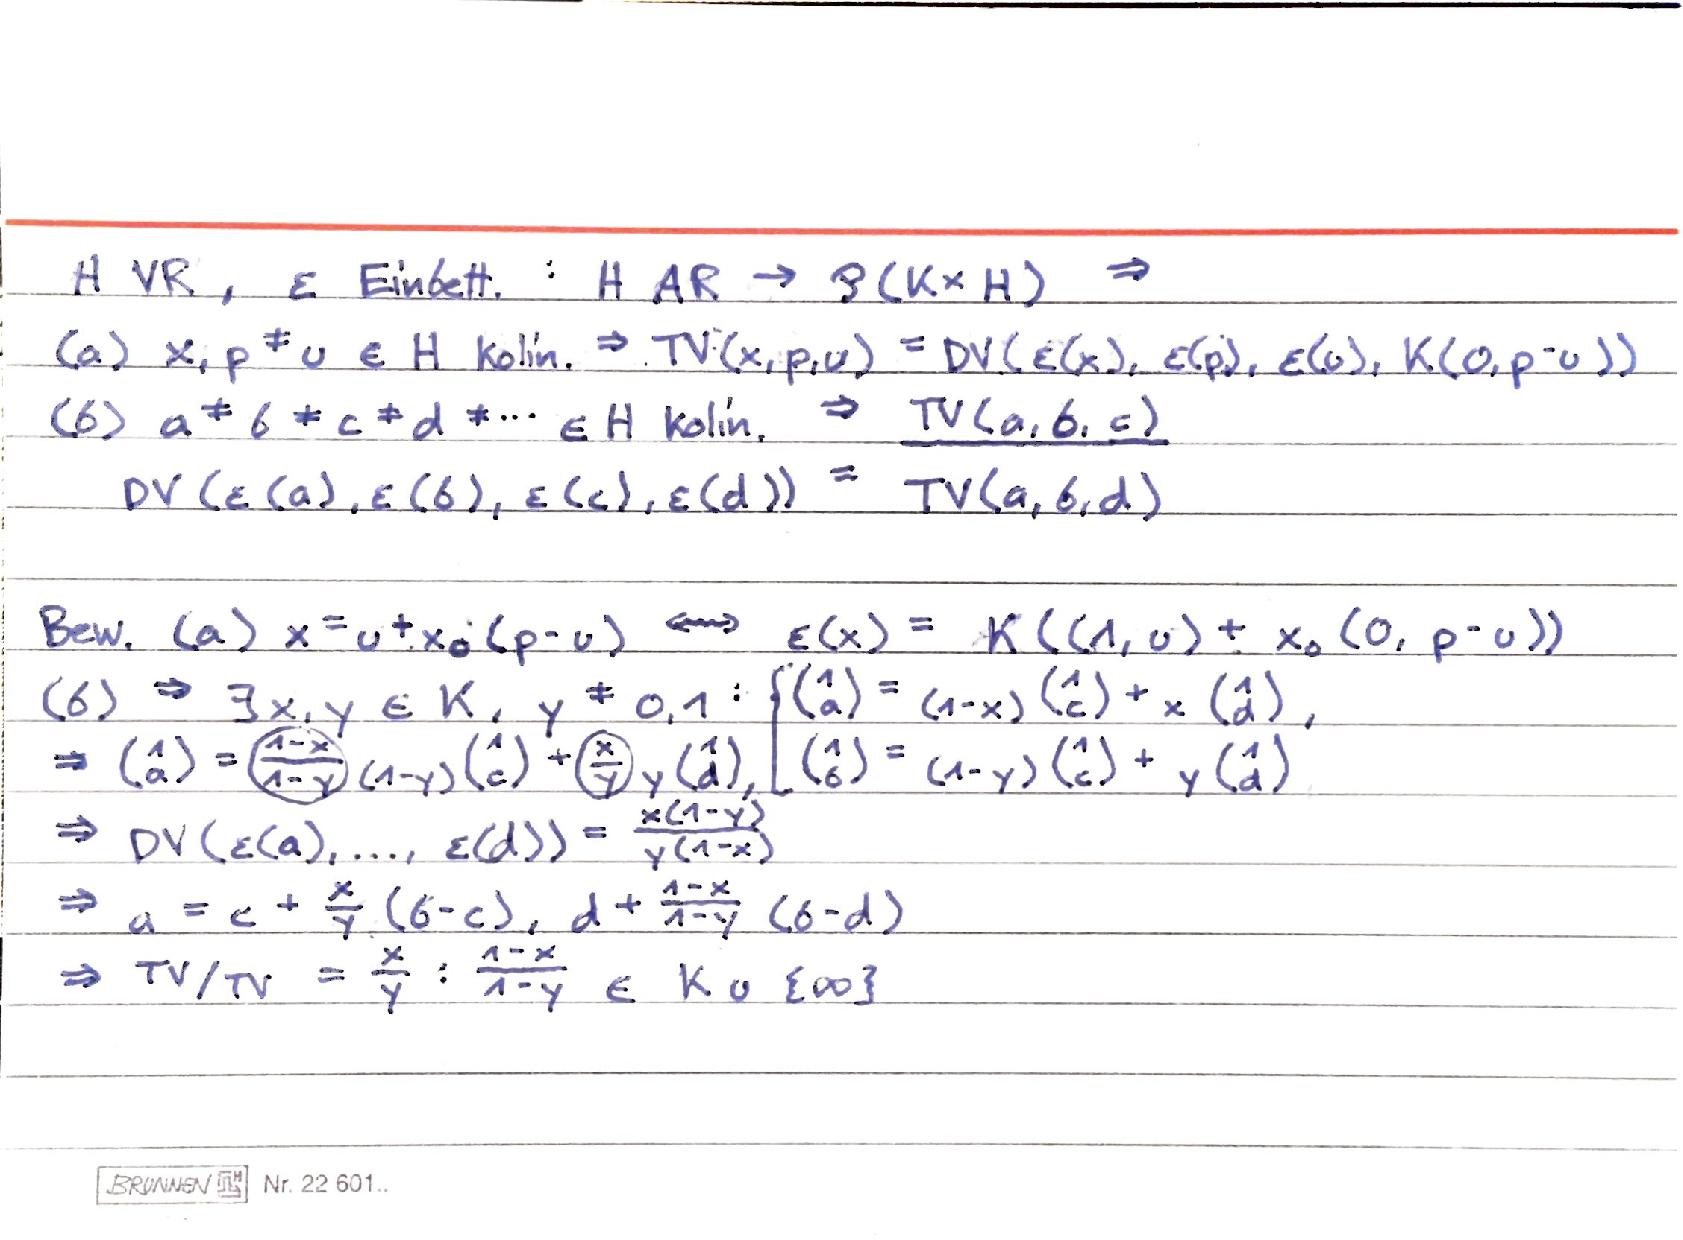 H VR, ε Einbett. : H AR → P(K×H) ⇒
(a) x, p ≠ u ∈ H kolin. ⇒ TV(x,p,u) = DV(ε(x), ε(p), ε(u), K(0,p-u))
(b) a ≠ b ≠ c ≠ d ≠ ... ∈ H kolin. ⇒ TV(a,b,c)
DV(ε(a), ε(b), ε(c), ε(d)) = TV(a,b,d)
Bew. (a) x = u + x₀ (p-u) ⟷ ε(x) = K((1,u) + x₀ (0, p-u))
(b) ⇒ ∃x,y ∈ K, y ≠ 0,1 : { (1 a) = (1-x) (1 c) + x (1 d),
⇒ (1 a) = (1-x)/(1-y) (1-y) (1 c) + x/y y (1 d), (1 b) = (1-y) (1 c) + y (1 d)
⇒ DV(ε(a), ..., ε(d)) = x(1-y)/y(1-x)
⇒ a = c + x/y (b-c), d + (1-x)/(1-y) (b-d)
⇒ TV/TV = x/y : (1-x)/(1-y) ∈ K ∪ {∞}
BRUNNEN Nr. 22 601..